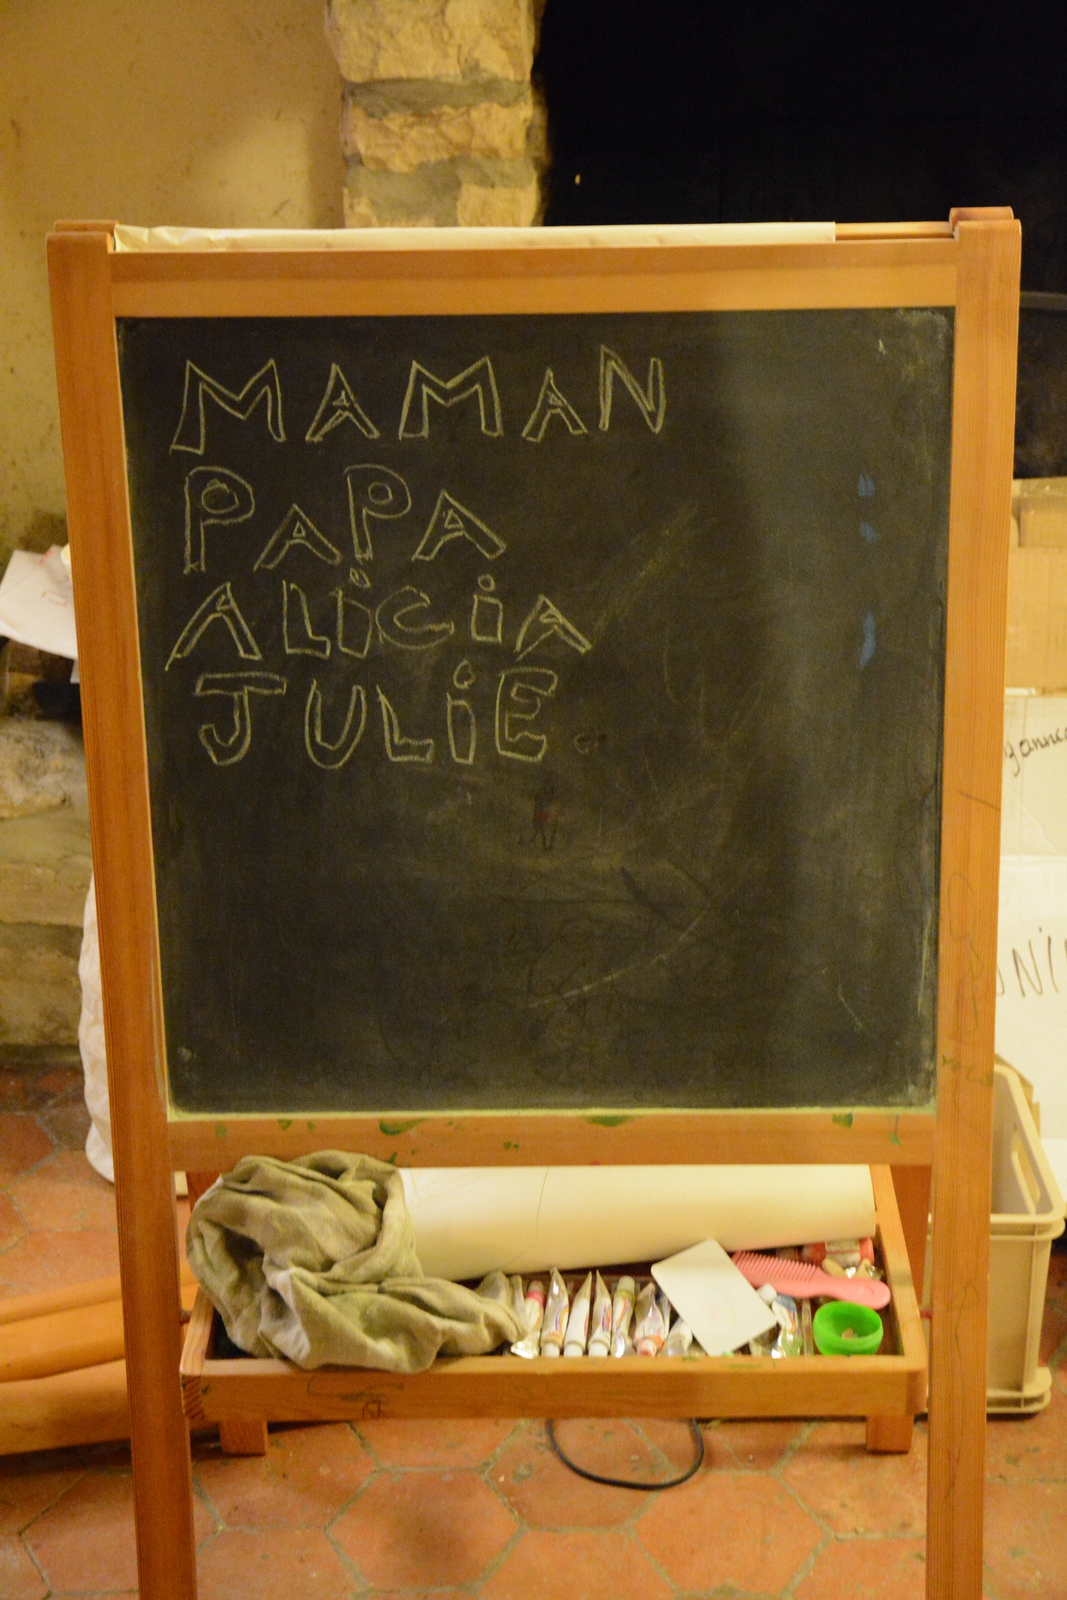 MAMAN
PAPA
ALiCiA
JULiE